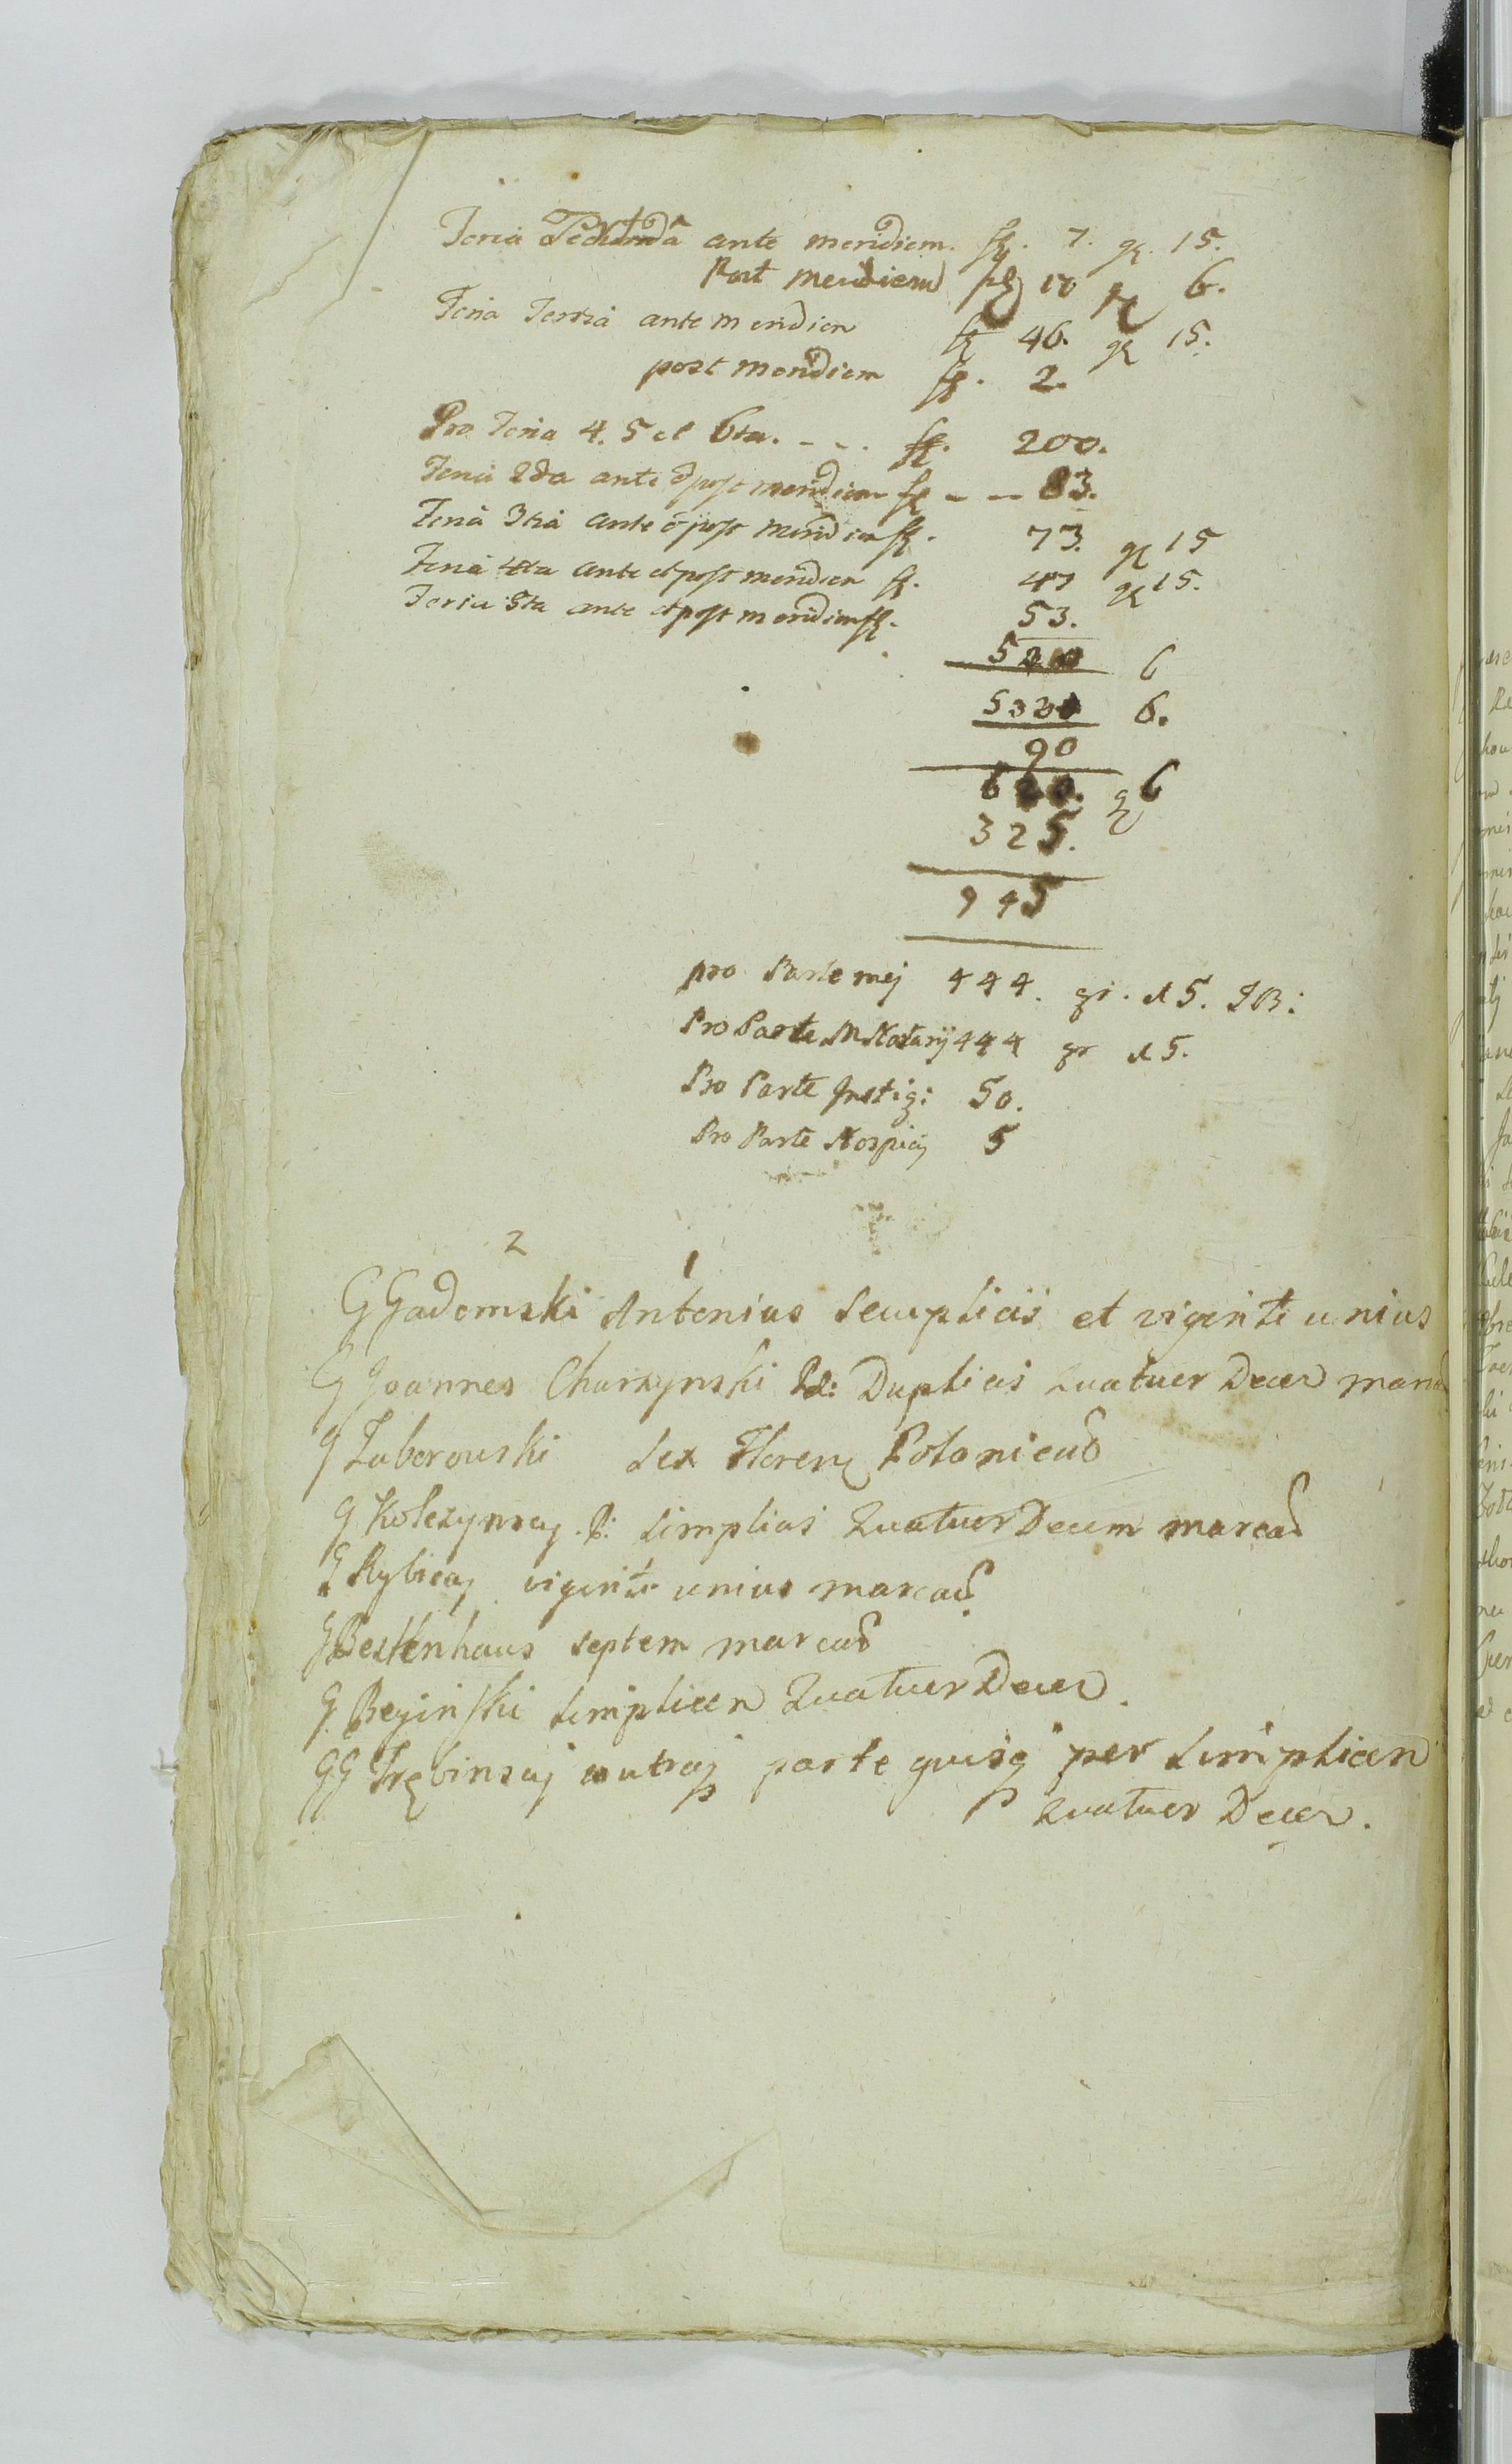 Feria Secunda ante meridiem. fl. 7. gr. 15.
Post meridiem fl 10 gr 6.
Feria Tertia ante meridiem fl 46. gr 15.
post meridiem fl. 2.
Pro Feria 4. 5 et 6ta. - - . fl. 200.
Feria 2da ante & post meridiem fl - - 83.
Feria 3tia ante & post meridiem fl. 73. gr 15
Feria 4ta ante et post meridiem fl. 47 gr 15.
Feria 5ta ante et post meridiem fl. 53.
6
6.
90
620. gr 6
325.
945
pro Parte mej 444. gr. 15. JB:
Pro Parte M Notarij 444 gr 15.
Pro Parte Instig: 50.
Pro Parte Hospicij 5
2 1
G Gadomski Antonius et viginti unius
G Joannes Charzynski Duplicis Quatuor Decem
G Zaborowski Sex Floren Polonicas
G Kolczynscy simplicis Quatuor Decem marcas
G Rybiccy viginti unius marcas
G Bestenhaus septem marcas
G. Beyinski simplicem Quatuor Decem.
GG Trębinscy utraq parte quisq per simplicem
Quatuor Decem.